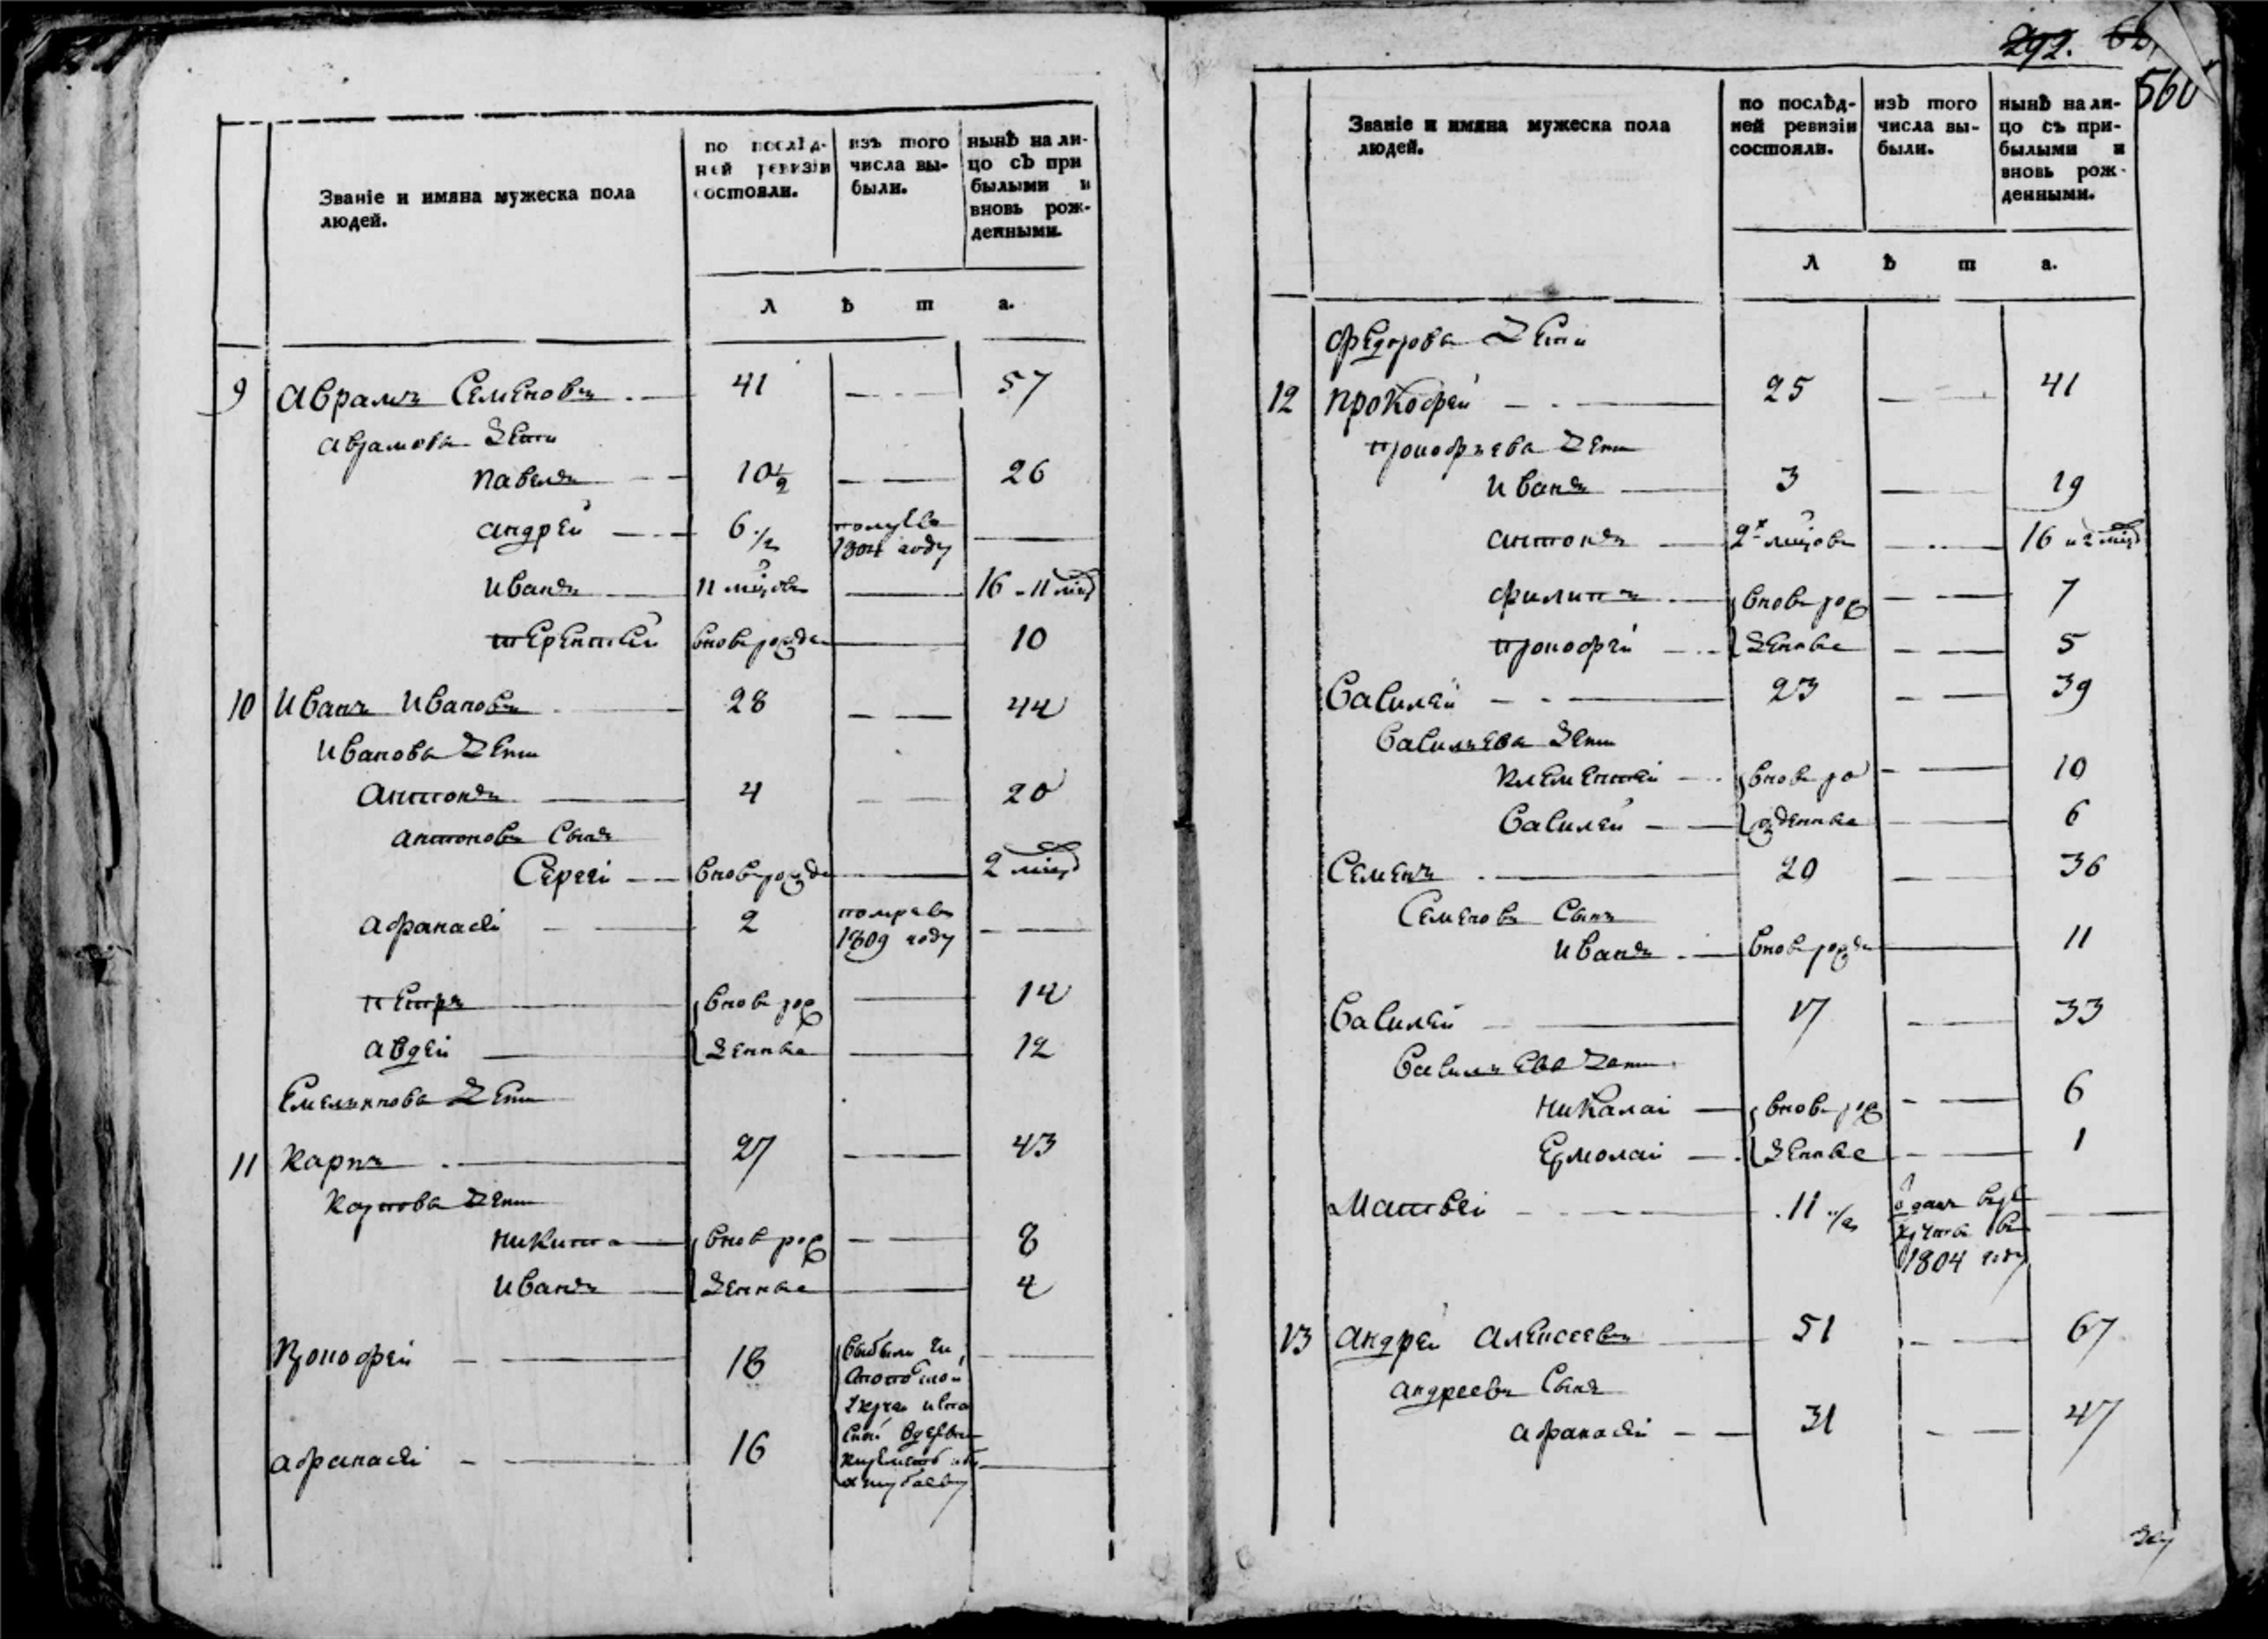 Званіе и имяна мужеска пола
людей.
по послѣд-
ней ревизіи
состояли.
изъ того
числа вы-
были.
нынѣ на ли-
цо съ при
былыми и
вновь рож-
денными.
л ѣ т а.
9 Аврамъ Семеновъ 41 57
Аврамовы Дети
Павелъ 10 1/2 26
Андрей 6 1/2
1804 году
Иванъ 11 мцовъ 16 11 мцд
Терентей вновь рожде 10
10 Иванъ Ивановъ 28 44
Ивановы Дети
Антонъ 4 20
Антоновъ Сынъ
Сергеі вновь рожде 2 мцд
Афанасеі 2 помре въ
1809 году
Петръ вновь рож 14
Авдей денные 12
Емельяновы Дети
11 Карпъ 27 43
Карповы Дети
Никита вновь рож 8
Иванъ денные 4
Прокофей 18
Афанасеі 16
292.
560
Званіе и имяна мужеска пола
людей.
по послѣд-
ней ревизіи
состояли.
изъ того
числа вы-
были.
нынѣ на ли-
цо съ при-
былыми и
вновь рож-
денными.
л ѣ т а.
Федорова Дети
12 Прокофей 25 41
Прокофьева Дети
Иванъ 3 19
Антонъ 2х мцовъ 16 и 2 мцд
Филипъ вновь рож 7
Прокофей денные 5
Василей 23 39
Васильева Дети
Клементей вновь ро 10
Василей жденные 6
Семенъ 20 36
Семеновъ Сынъ
Иванъ вновь рожде 11
Василей 17 33
Васильева Дети
Николаі вновь рож 6
Ермолаі денные 1
Матвеі 11 1/2
1804 году
13 Андрей Алексеевъ 51 67
Андреевъ Сынъ
Афанасеі 31 47